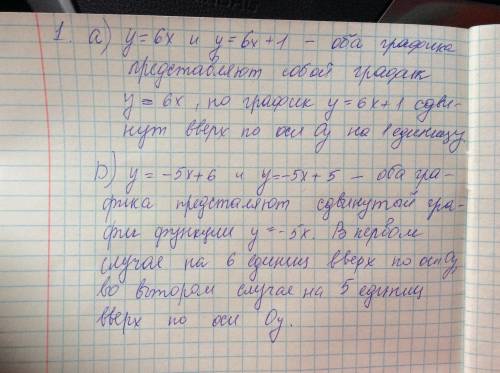 1. а) y=6x и y=6x+1 – оба графика
представляют собой график
y = 6x, но график y=6x+1 сдви-
нут вверх по оси Oy на 1 единицу
b) y = -5x+6 и y=-5x+5 – оба гра-
фика предсталяют сдвинутый гра-
фик функции y=-5x. В первом
случае на 6 единиц вверх по оси Oy,
во втором случае на 5 единиц
вверх по оси Oy.